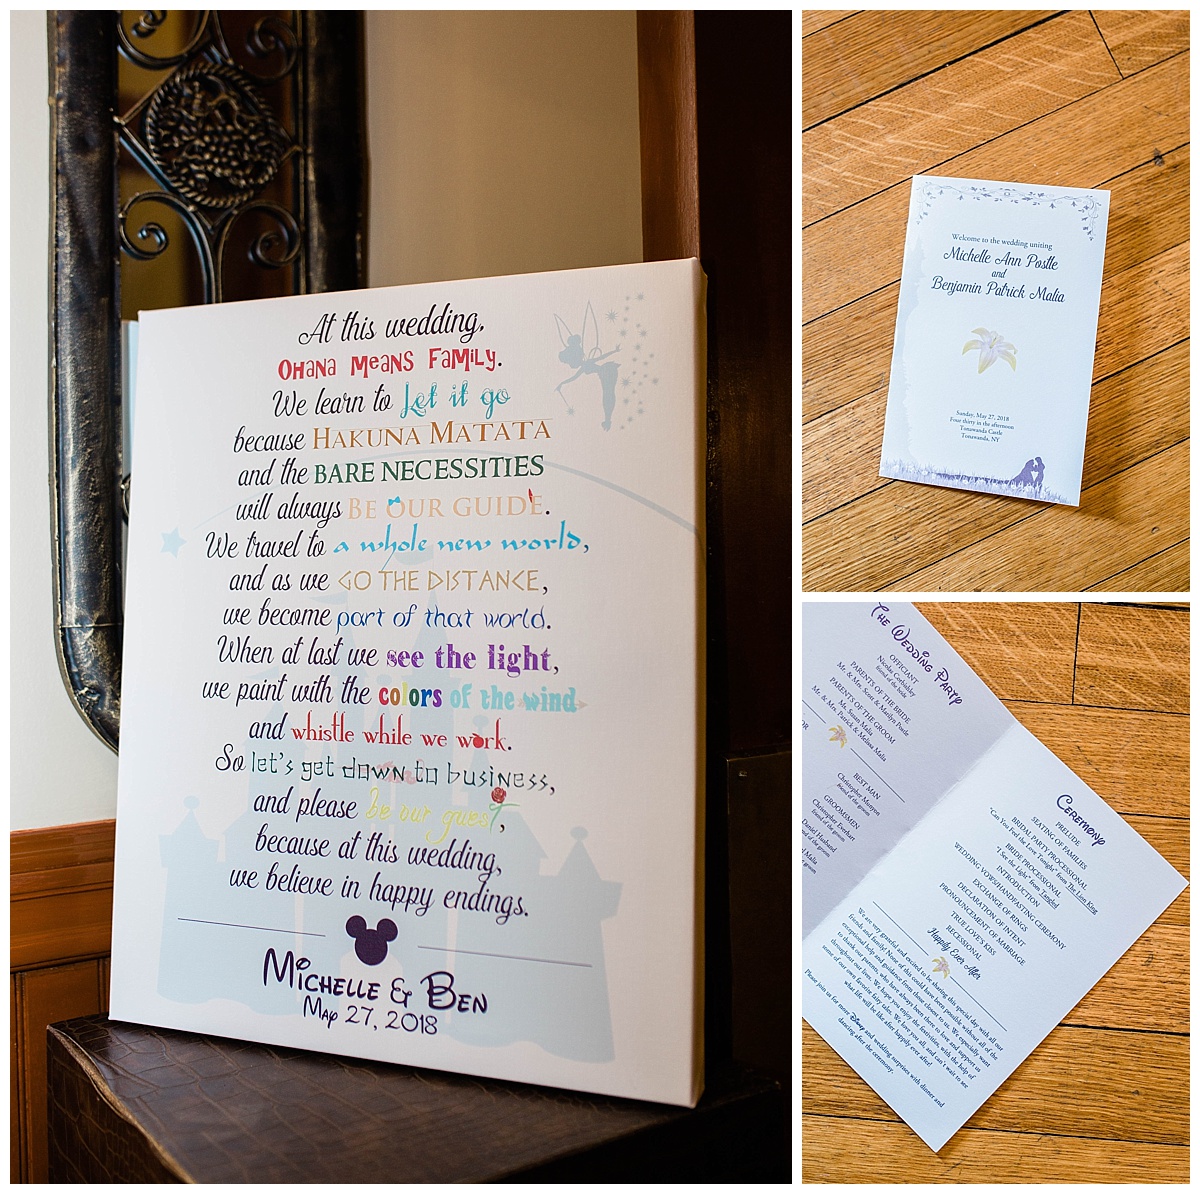 At this wedding,
Ohana Means Family.
We learn to Let it go
because HAKUNA MATATA
and the BARE NECESSITIES
will always BE OUR GUIDE.
We travel to a whole new world,
and as we GO THE DISTANCE,
we become part of that world.
When at last we see the light,
we paint with the colors of the wind
and whistle while we work.
So let's get down to business,
and please be our guest,
because at this wedding,
we believe in happy endings.
Michelle & Ben
May 27, 2018
Welcome to the wedding uniting
Michelle Ann Postle
and
Benjamin Patrick Malia
Sunday, May 27, 2018
Four thirty in the afternoon
Tonawanda Castle
Tonawanda, NY
The Wedding Party
OFFICIANT
Nicolas Corbishley
friend of the bride
PARENTS OF THE BRIDE
Mr. & Mrs. Scott & Marilyn Postle
PARENTS OF THE GROOM
Ms. Susan Malia
Mr. & Mrs. Patrick & Melissa Malia
OR
BEST MAN
Christopher Menyon
friend of the groom
GROOMSMEN
Christopher Everhart
friend of the groom
Daniel Husband
of the groom
Malia
groom
Ceremony
PRELUDE
SEATING OF FAMILIES
"Can You Feel the Love Tonight" from The Lion King
BRIDAL PARTY PROCESSIONAL
"I See the Light" from Tangled
BRIDE PROCESSIONAL
INTRODUCTION
WEDDING VOWS/HANDFASTING CEREMONY
EXCHANGE OF RINGS
DECLARATION OF INTENT
PRONOUNCEMENT OF MARRIAGE
TRUE LOVE'S KISS
RECESSIONAL
Happily Ever After
We are very grateful and excited to be sharing this special day with all our
friends and family! None of this could have been possible without all of the
exceptional help and guidance from those closest to us. We especially want
to thank our parents, who have always been there to love and support us
throughout our lives. We hope you enjoy the festivities, with the help of
some of our own favorite fairy tales. We love you all, and can't wait to see
what life will be like after happily ever after!
Please join us for more Disney and wedding surprises with dinner and
dancing after the ceremony.